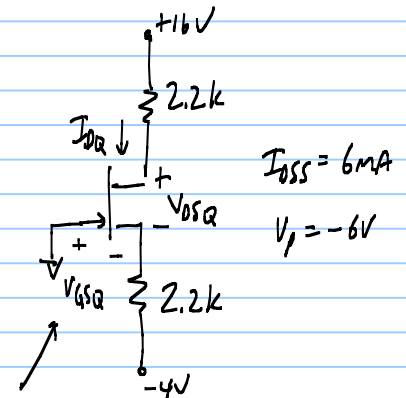 +16V
2.2k
IDQ
+
VDSQ
-
IDSS = 6mA
Vp = -6V
+
-
VGSQ
2.2k
-4V